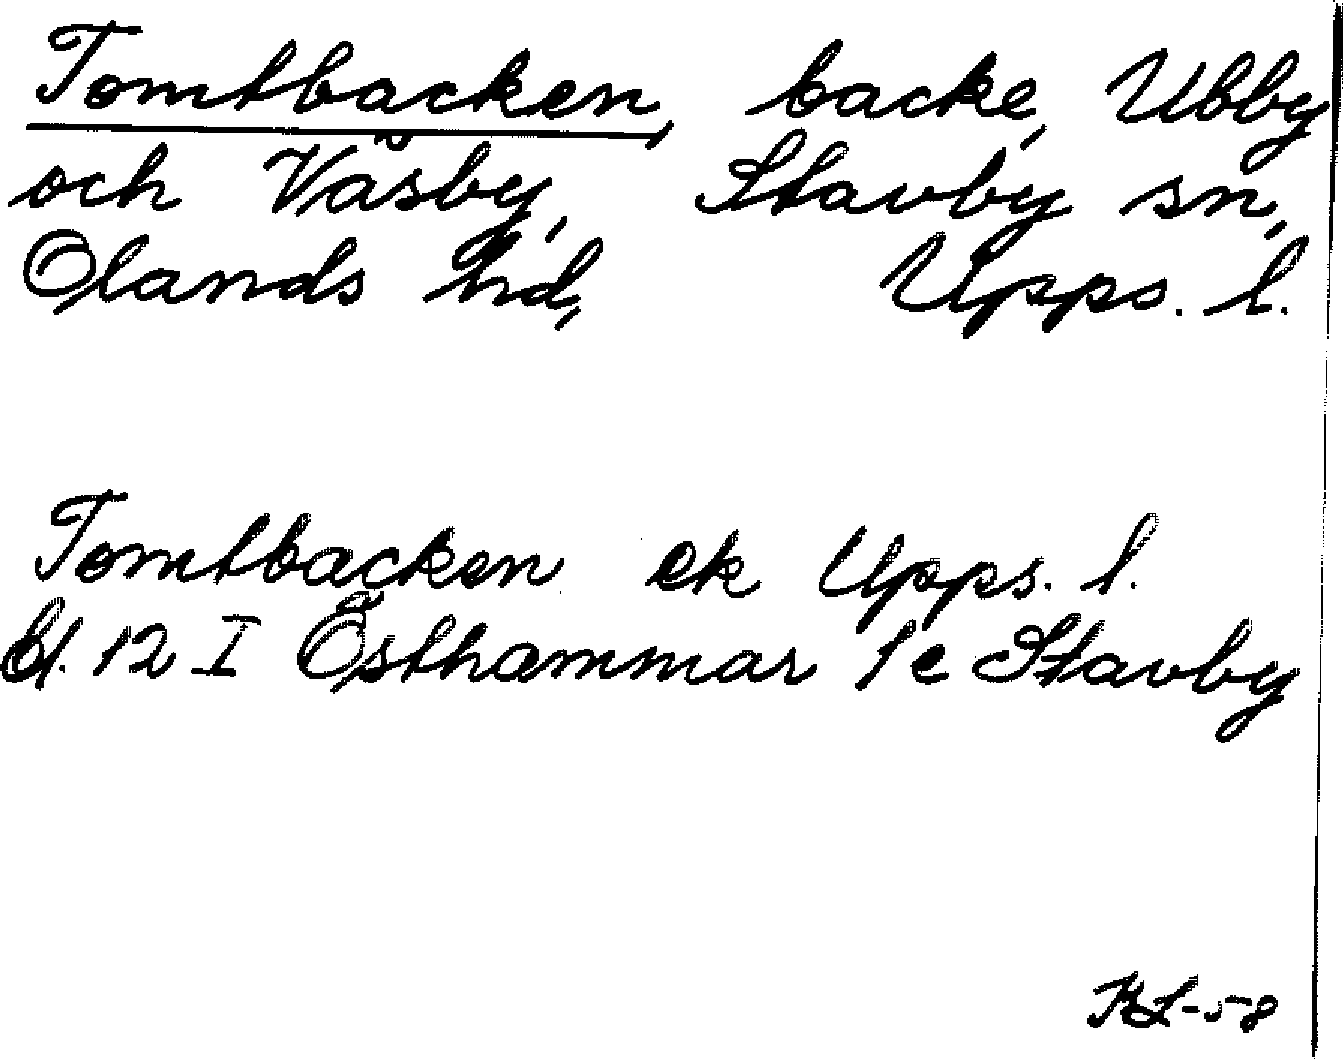 Tomtbacken, backe, Ubby
och Väsby, Stavby sn,
Olands hd, Upps. l.
Tomtbacken ek Upps. l.
bl. 12 I Östhammar 1e Stavby
KL-58